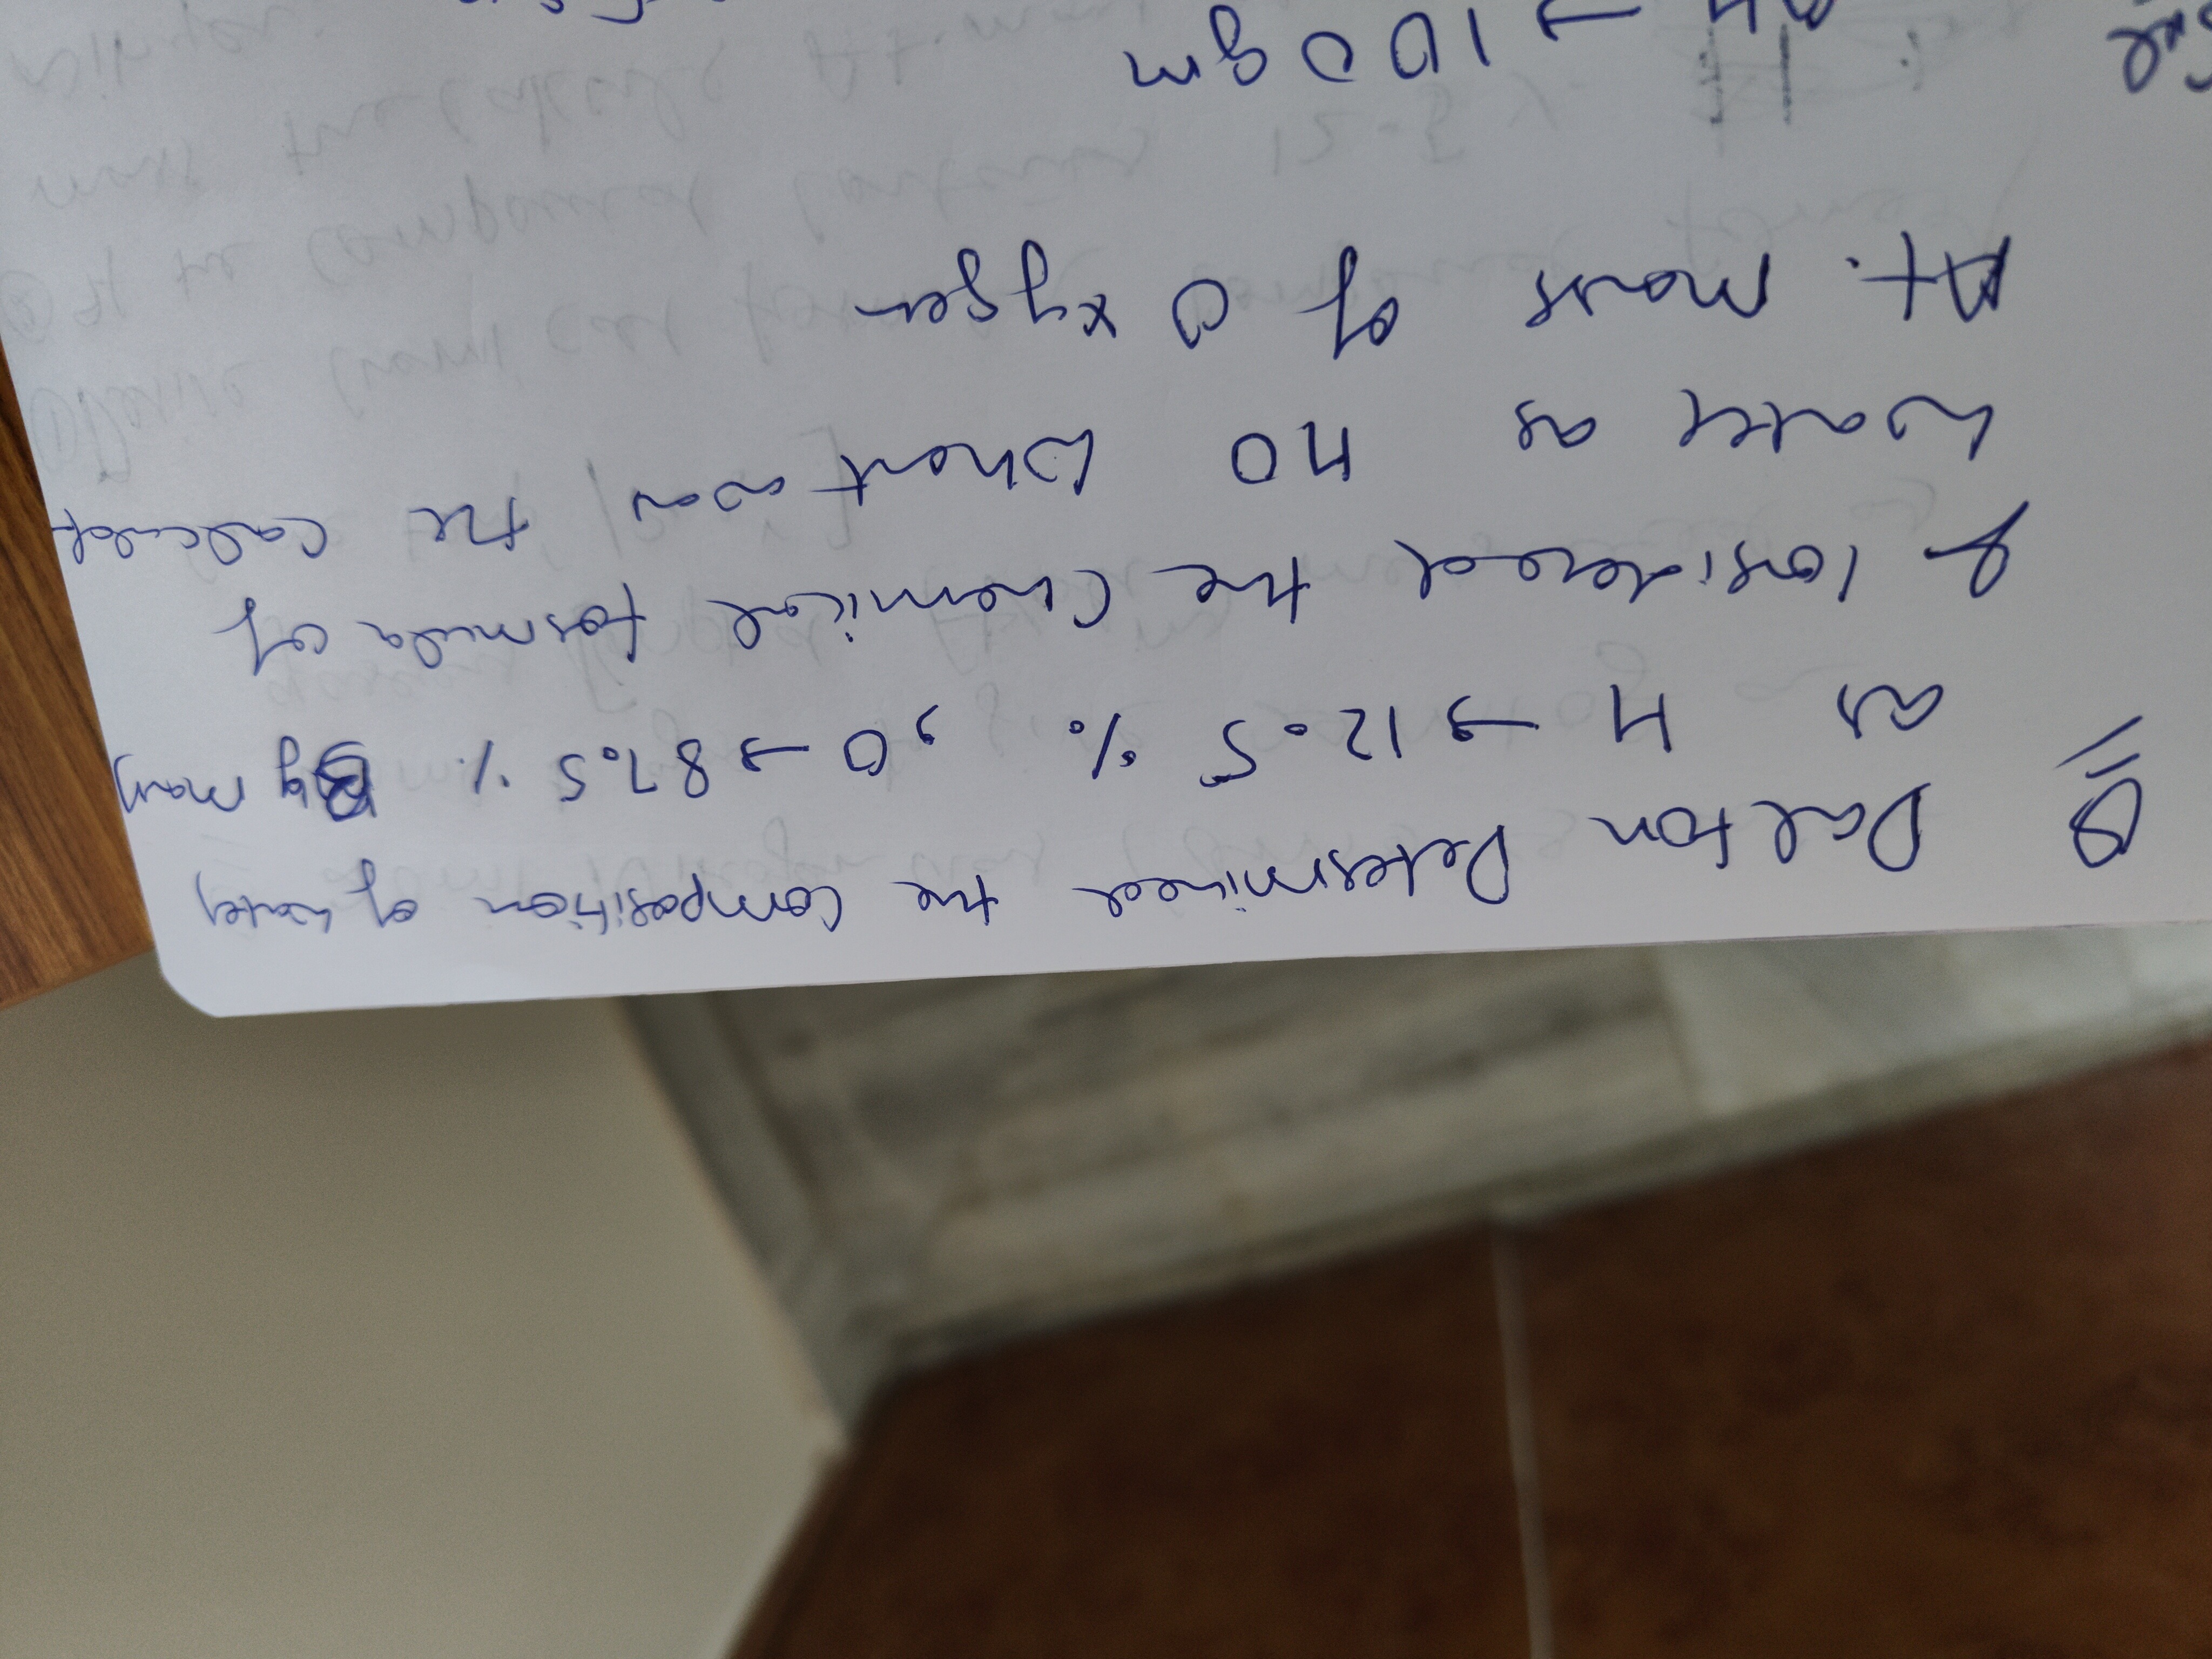 Q Dalton Determined the composition of water
as H → 12.5 % , O → 87.5 % By mass
& Considered the Chemical formula of
water as HO What was the calculated
At. mass of Oxygen
→ 100 gm